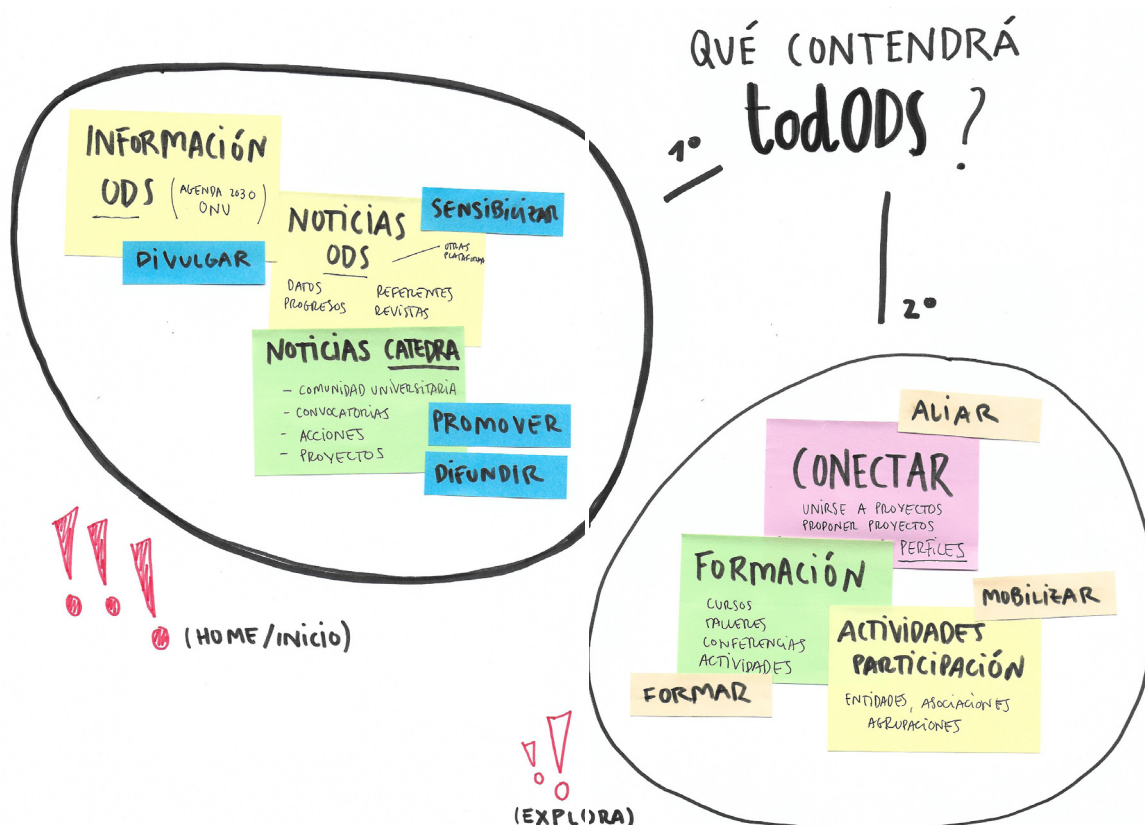 QUÉ CONTENDRÁ
todODS ?
1º
INFORMACIÓN
ODS (AGENDA 2030
ONU)
DIVULGAR
NOTICIAS
ODS
OTRAS
PLATAFORMA
SENSIBILIZAR
DATOS
PROGRESOS
REFERENTES
REVISTAS
NOTICIAS CATEDRA
- COMUNIDAD UNIVERSITARIA
- CONVOCATORIAS
- ACCIONES
- PROYECTOS
PROMOVER
DIFUNDIR
!!! (HOME/INICIO)
2º
ALIAR
CONECTAR
UNIRSE A PROYECTOS
PROPONER PROYECTOS
PERFILES
FORMACIÓN
CURSOS
TALLERES
CONFERENCIAS
ACTIVIDADES
FORMAR
MOBILIZAR
ACTIVIDADES
PARTICIPACIÓN
ENTIDADES, ASOCIACIONES
AGRUPACIONES
!!
(EXPLORA)